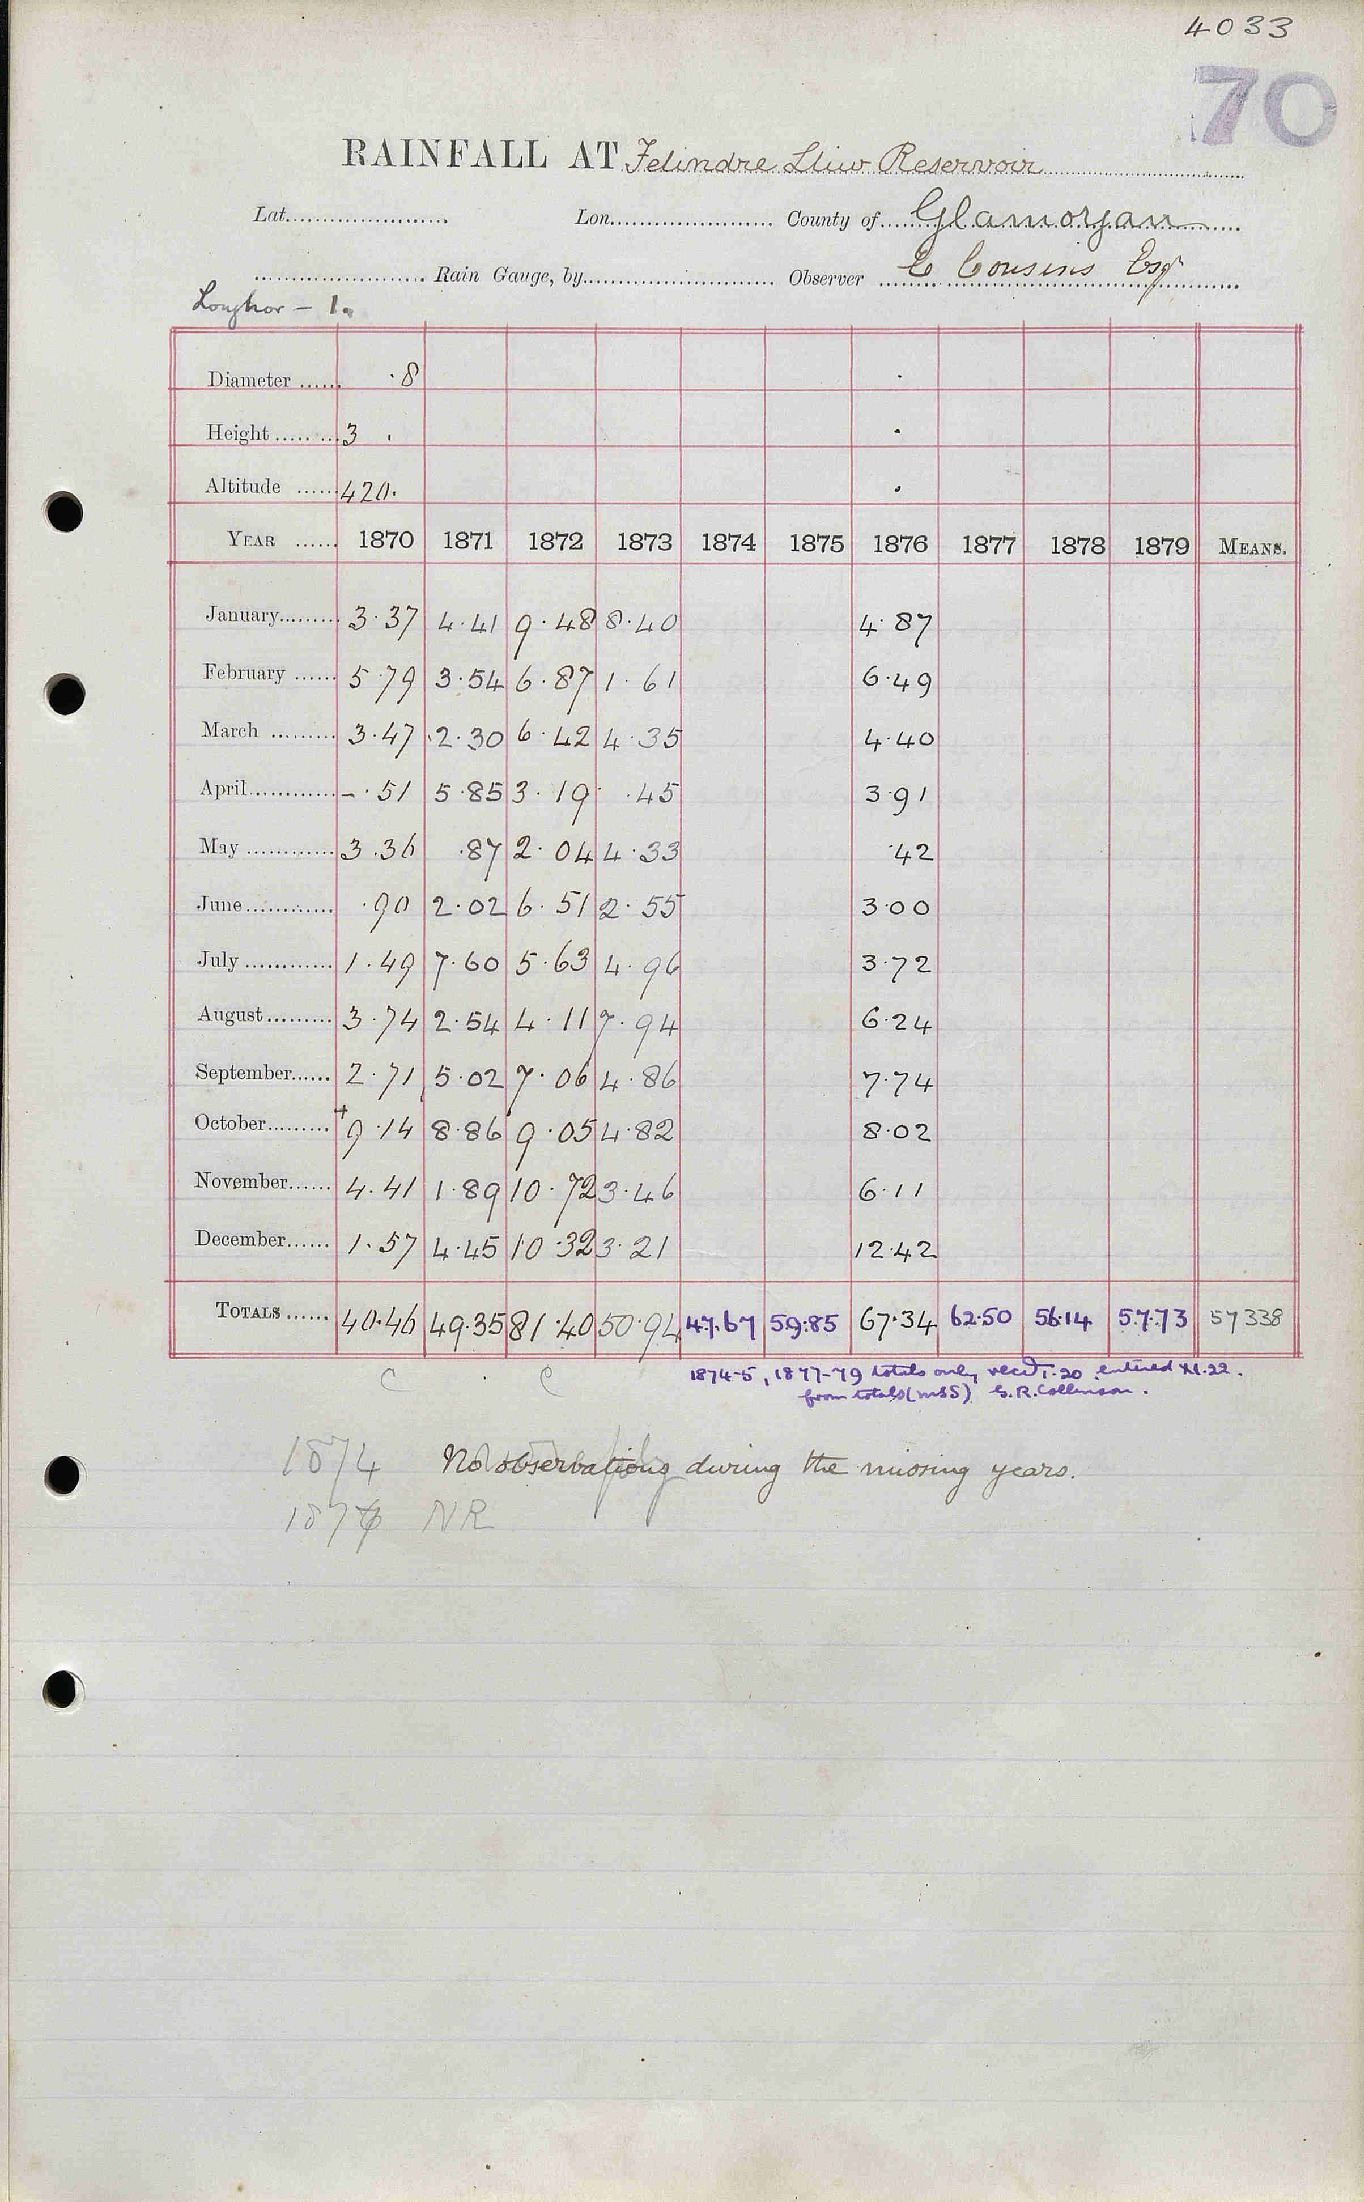 4033
70
RAINFALL AT Felindre Lliw Reservoir
Lat. Lon. County of Glamorgan
Rain Gauge, by Observer E Cousins Esqr
Loughor – 1.
Diameter ...... ·8
Height ...... 3 .
Altitude ...... 420.
YEAR ...... 1870 1871 1872 1873 1874 1875 1876 1877 1878 1879 MEANS.
January 3·37 4·41 9·48 8·40 4·87
February 5 79 3·54 6·87 1·61 6·49
March 3·47 2·30 6·42 4·35 4·40
April – ·51 5·85 3·19 ·45 3·91
May 3.36 ·87 2·04 4·33 ·42
June ·90 2·02 6·51 2·55 3·00
July 1·49 7·60 5·63 4·96 3·72
August 3·74 2·54 4·11 7·94 6·24
September 2·71 5·02 7·06 4·86 7·74
October +9·14 8·86 9·05 4·82 8·02
November 4.41 1·89 10·72 3·46 6·11
December 1·57 4·45 10·32 3·21 12·42
TOTALS 40.46 49.35 81·40 50·94 47.67 59.85 67·34 62·50 56.14 57.73 57 338
C C
1874-5, 1877-79 totals only recd I.20 entered XI.22.
from totals (MSS) G.R. Collinson.
1874 No observations during the missing years.
1876 NR